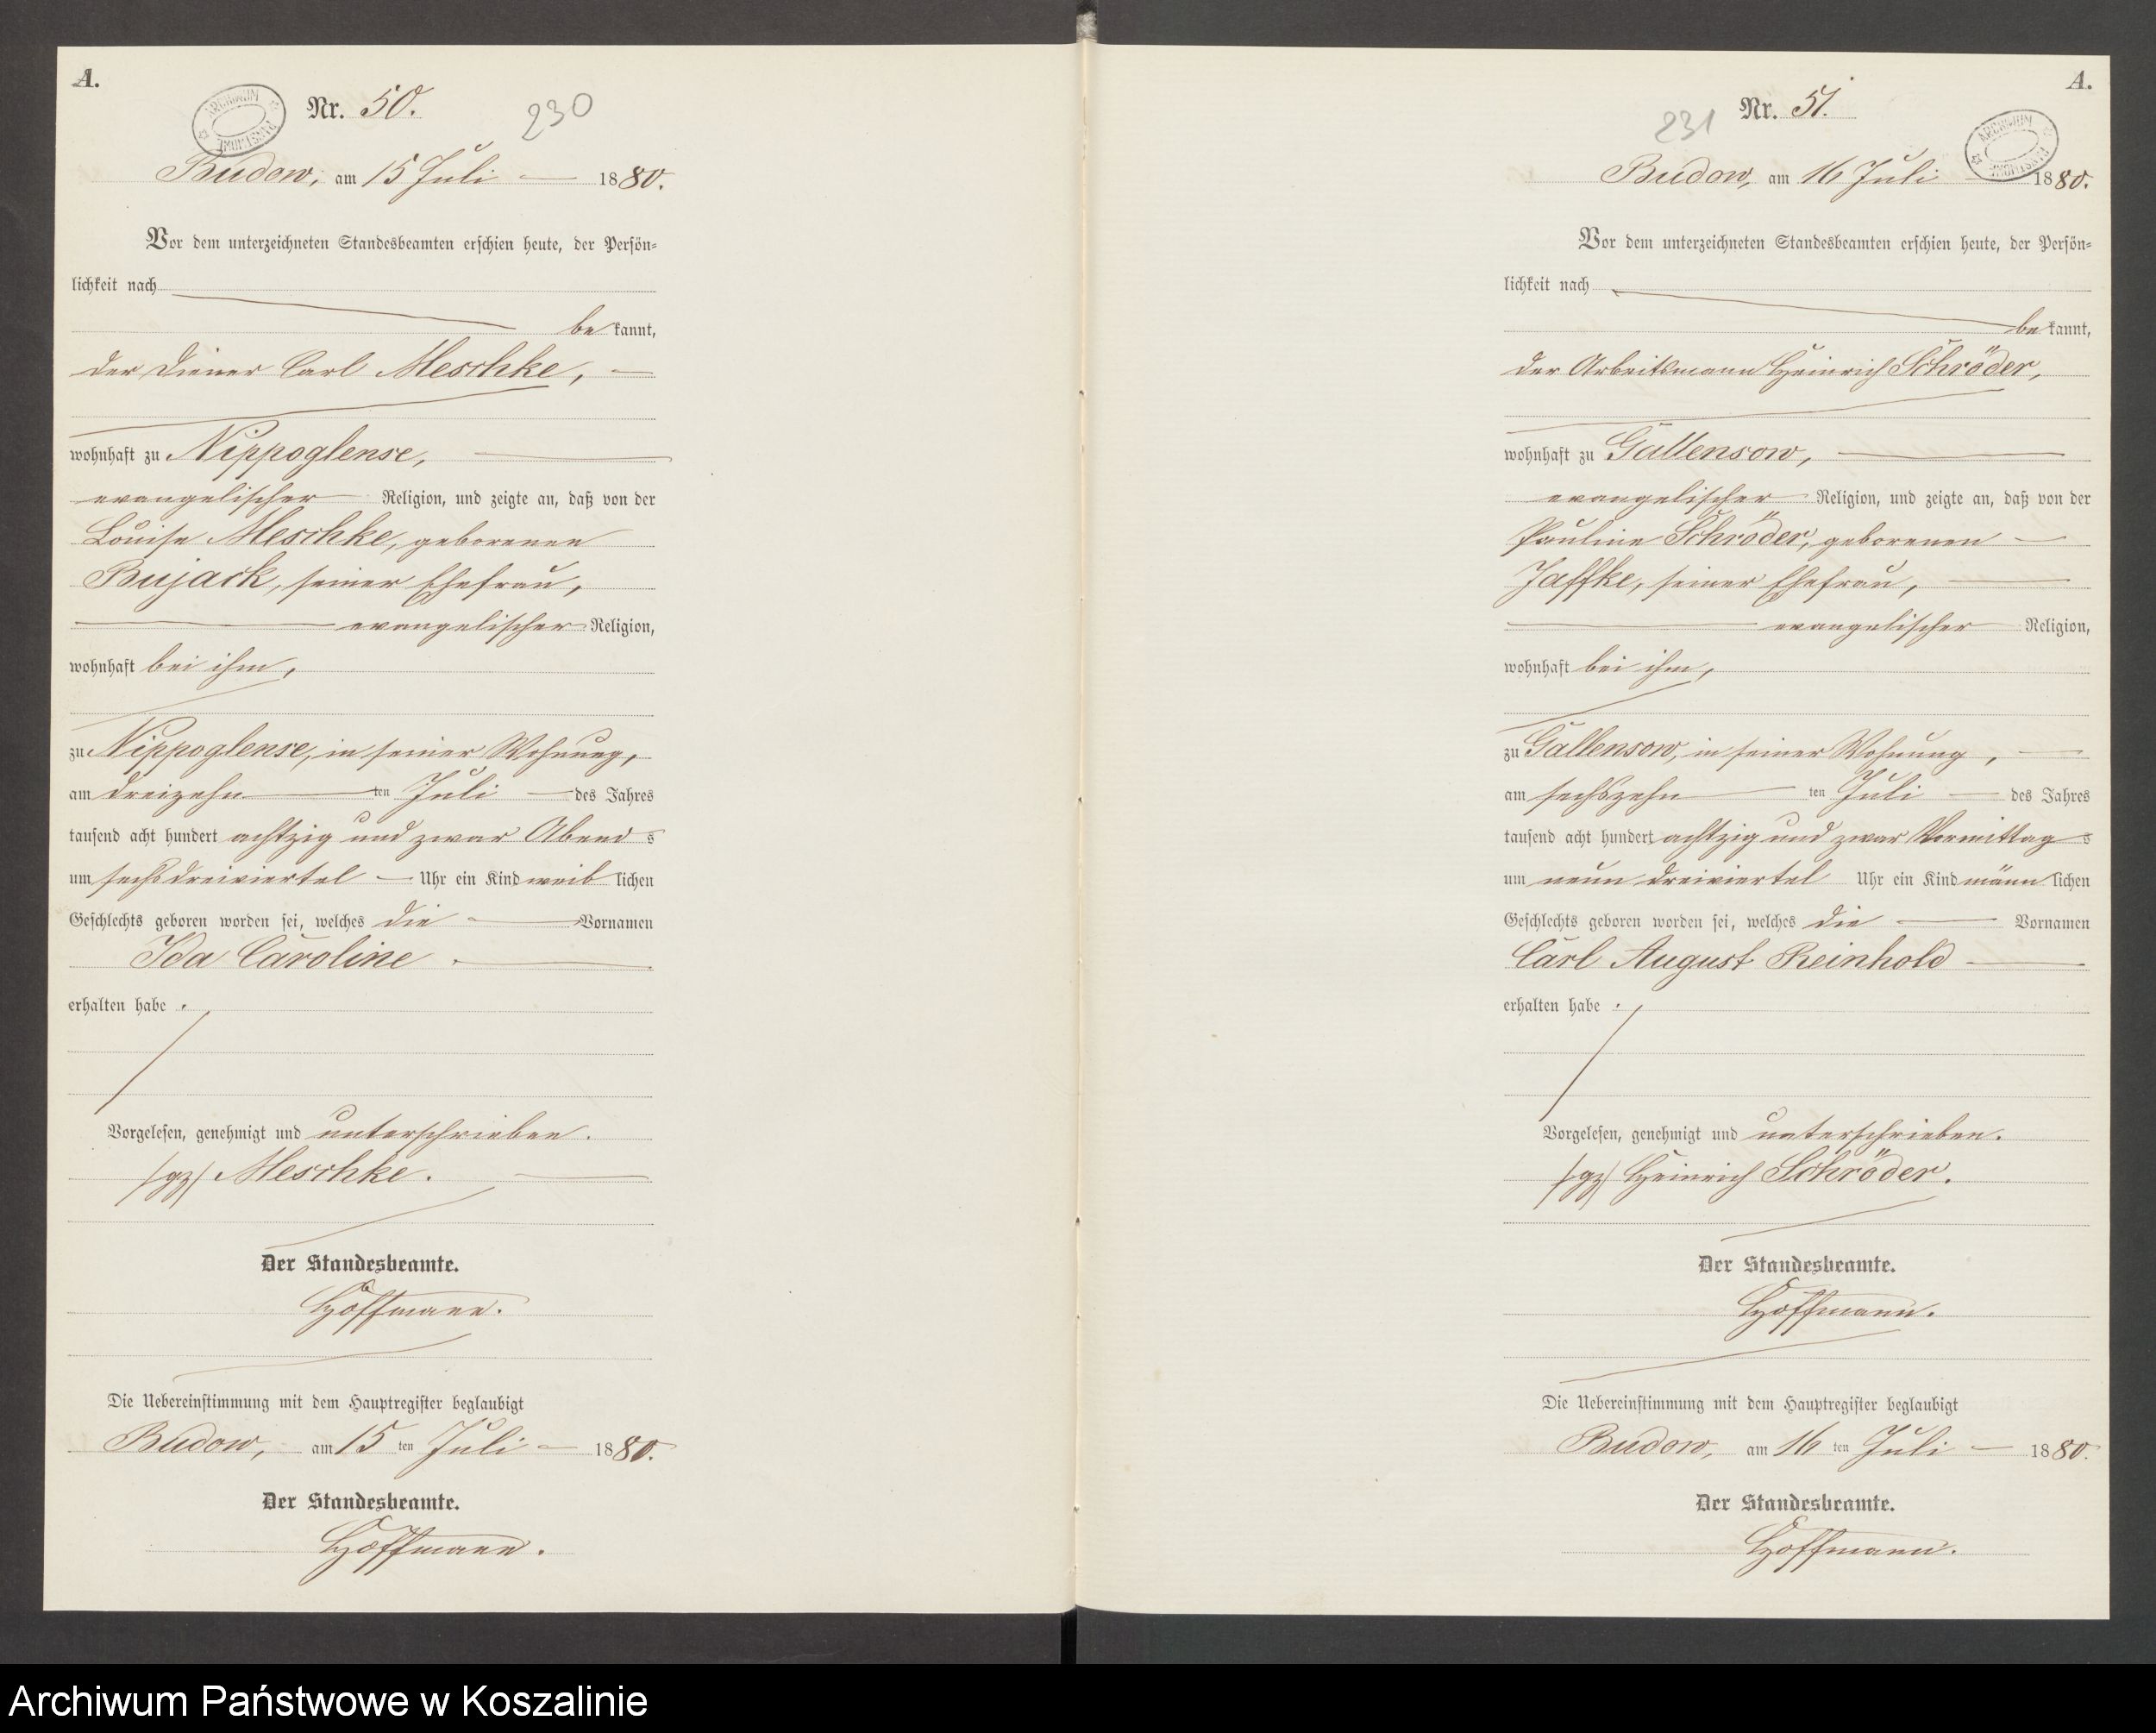 A.
ARCHIWUM PAŃSTWOWE
Nr. 50.
230
Budow, am 15 Juli 1880.
Vor dem unterzeichneten Standesbeamten erschien heute, der Persön=
lichkeit nach
be kannt,
der Diener Carl Meschke,
wohnhaft zu Nippoglense,
evangelischer Religion, und zeigte an, daß von der
Louise Meschke, geborenen
Bujack, seiner Ehefrau,
evangelischer Religion,
wohnhaft bei ihm,
zu Nippoglense, in seiner Wohnung,
am dreizehn ten Juli des Jahres
tausend acht hundert achtzig und zwar Abend s
um sechs dreiviertel Uhr ein Kind weib lichen
Geschlechts geboren worden sei, welches die Vornamen
Ida Caroline
erhalten habe.
Vorgelesen, genehmigt und unterschrieben.
/gz/ Meschke.
Der Standesbeamte.
Hoffmann.
Die Uebereinstimmung mit dem Hauptregister beglaubigt
Budow, am 15 ten Juli 1880.
Der Standesbeamte.
Hoffmann.
A.
Nr. 51.
231
ARCHIWUM PAŃSTWOWE
Budow, am 16 Juli 1880.
Vor dem unterzeichneten Standesbeamten erschien heute, der Persön=
lichkeit nach
be kannt,
der Arbeitsmann Heinrich Schröder,
wohnhaft zu Gallensow,
evangelischer Religion, und zeigte an, daß von der
Pauline Schröder, geborenen
Jaffke, seiner Ehefrau,
evangelischer Religion,
wohnhaft bei ihm,
zu Gallensow, in seiner Wohnung,
am sechszehn ten Juli des Jahres
tausend acht hundert achtzig und zwar Vormittag s
um neun dreiviertel Uhr ein Kind männ lichen
Geschlechts geboren worden sei, welches die Vornamen
Carl August Reinhold
erhalten habe.
Vorgelesen, genehmigt und unterschrieben.
/gz/ Heinrich Schröder.
Der Standesbeamte.
Hoffmann.
Die Uebereinstimmung mit dem Hauptregister beglaubigt
Budow, am 16 ten Juli 1880.
Der Standesbeamte.
Hoffmann.
Archiwum Państwowe w Koszalinie